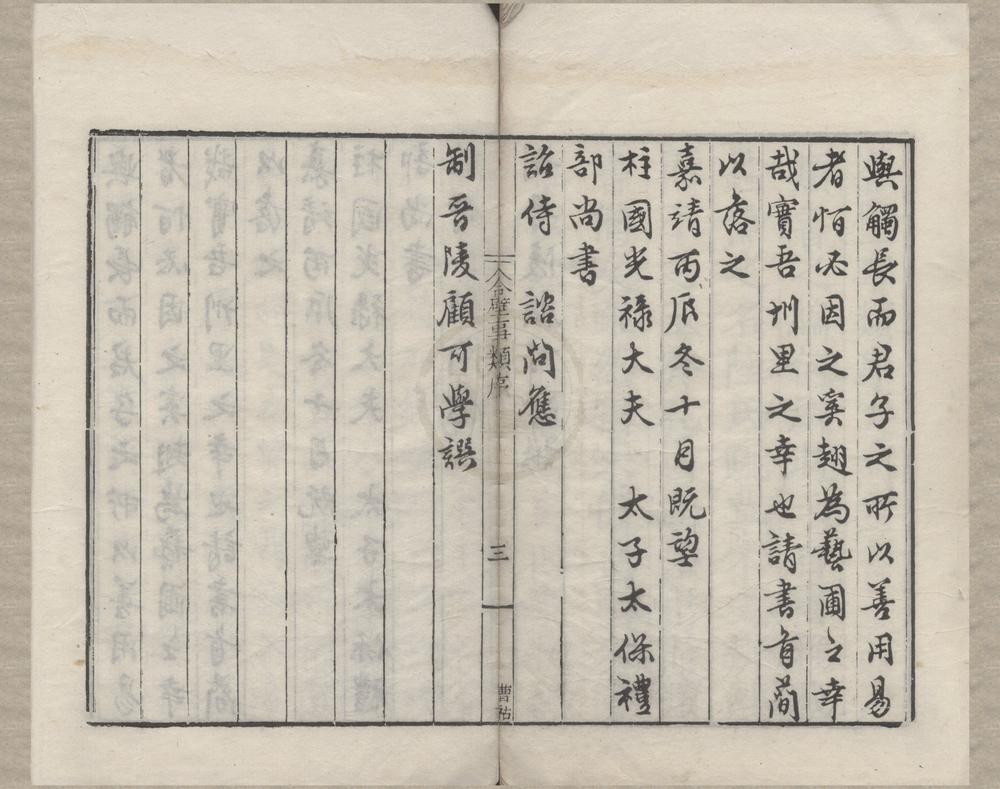 與觸長而君子之所以善用易
者恒必因之奚翅為藝圃之幸
哉實吾州里之幸也請書首簡
以落之
嘉靖丙辰冬十月既望
柱國光祿大夫 太子太保禮
部尚書
詔侍 諮問應
制晉陵顧可學譔
合璧事類序 三 曹